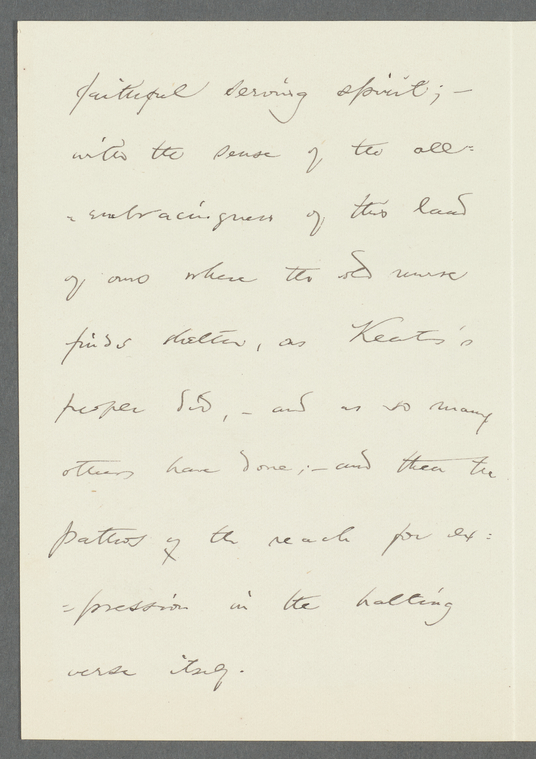 faithful serving spirit; –
with the sense of the all=
=embracingness of this land
of ours where the old nurse
finds shelter, as Keats's
people did, – and as so many
others have done; – and then the
pathos of the reach for ex=
=pression in the halting
verse itself.